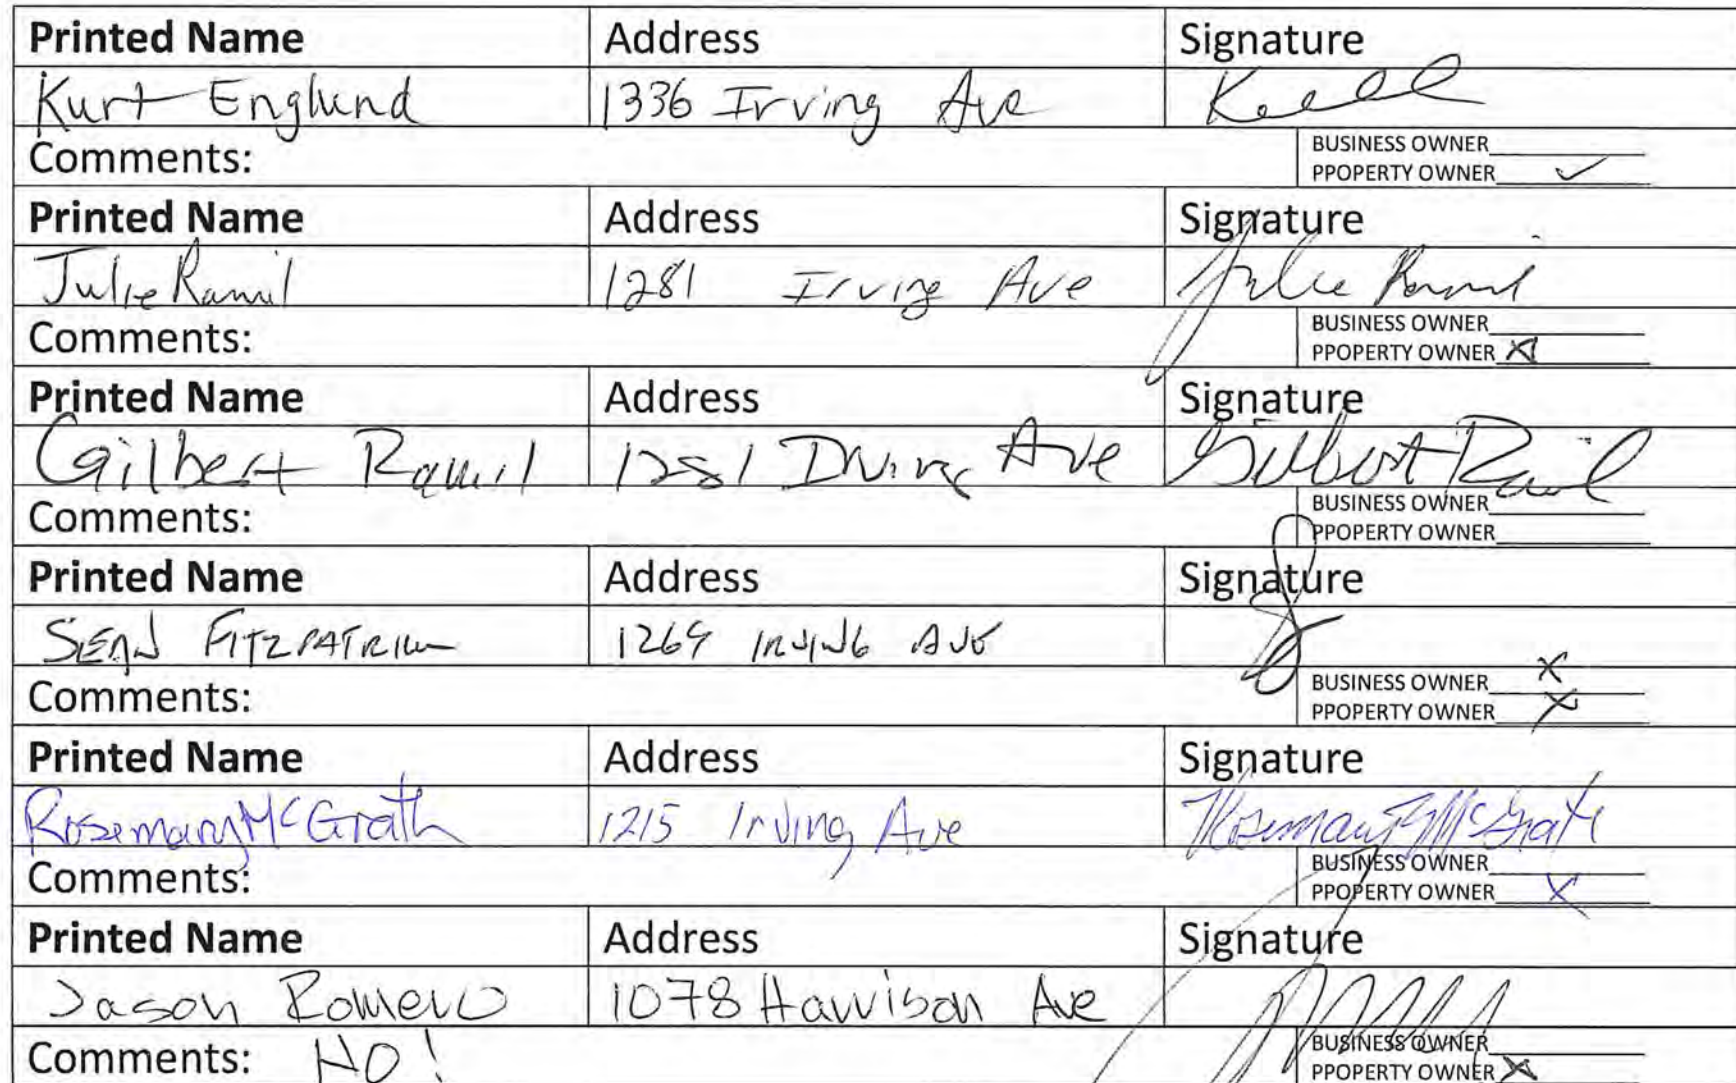 Printed Name Address Signature
Kurt Englund 1336 Irving Ave
Comments: BUSINESS OWNER
PPOPERTY OWNER ✓
Printed Name Address Signature
Julie Ramil 1281 Irving Ave Julie Ramil
Comments: BUSINESS OWNER
PPOPERTY OWNER X
Printed Name Address Signature
Gilbert Ramil 1281 Irving Ave Gilbert Ramil
Comments: BUSINESS OWNER
PPOPERTY OWNER
Printed Name Address Signature
SEAN FITZPATRICK 1269 IRVING AVE
Comments: BUSINESS OWNER X
PPOPERTY OWNER X
Printed Name Address Signature
Rosemary McGrath 1215 Irving Ave Rosemary McGrath
Comments: BUSINESS OWNER
PPOPERTY OWNER X
Printed Name Address Signature
Jason Romero 1078 Harrison Ave
Comments: NO! BUSINESS OWNER
PPOPERTY OWNER X